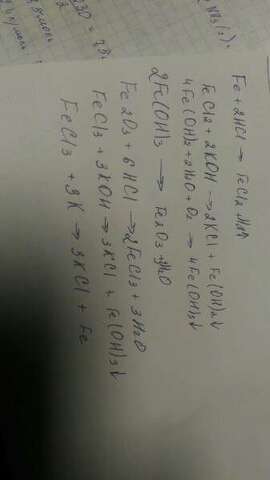 Fe + 2HCl → FeCl2 + H2↑
FeCl2 + 2KOH → 2KCl + Fe(OH)2↓
4Fe(OH)2 + 2H2O + O2 → 4Fe(OH)3↓
2Fe(OH)3 → Fe2O3 + 3H2O
Fe2O3 + 6HCl → 2FeCl3 + 3H2O
FeCl3 + 3KOH → 3KCl + Fe(OH)3↓
FeCl3 + 3K → 3KCl + Fe